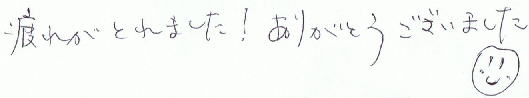 疲れがとれました！ありがとうございました